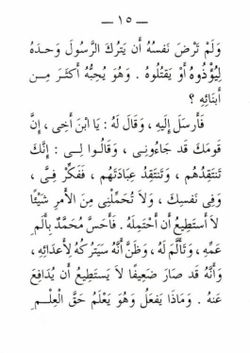 — ١٥ —
وَلَمْ تَرْضَ نَفْسُهُ أَن يَتْرُكَ الرَّسُولَ وَحدَهُ
لِيُؤْذُوهُ أَوْ يَقْتُلُوهُ . وَهُوَ يُحِبُّهُ أَكثَرَ مِـن
أَبنَائِهِ ؟
فَأَرسَلَ إِلَيهِ ، وَقَالَ لَهُ : يَا ابْنَ أَخِى ، إِنَّ
قَومَكَ قَد جَاءُونِى ، وَقَالُـوا لِـى : إِنَّـكَ
تَنتَقِدُهُم ، وَتَنتَقِدُ عِبَادَتَهُم ، فَفَكِّرْ فِـىَّ ،
وَفِى نَفسِكَ ، وَلاَ تُحَمِّلْنِى مِنَ الأَمرِ شَيْئًا
لاَ أَستَطِيعُ أَنْ أَحتَمِلَهُ . فَأَحَسَّ مُحَمَّدٌ بِأَلَمِ
عَمِّهِ ، وَتَأَلَّمَ لَهُ ، وَظَنَّ أَنَّهُ سَيَترُكهُ لأَعدَائِهِ ،
وَأَنَّهُ قَد صَارَ ضَعِيفًا لاَ يَستَطِيعُ أَن يُدَافِعَ
عَنهُ . وَمَاذَا يَفعَلُ وَهُوَ يَعْلَمُ حَقَّ الْعِلْـمِ